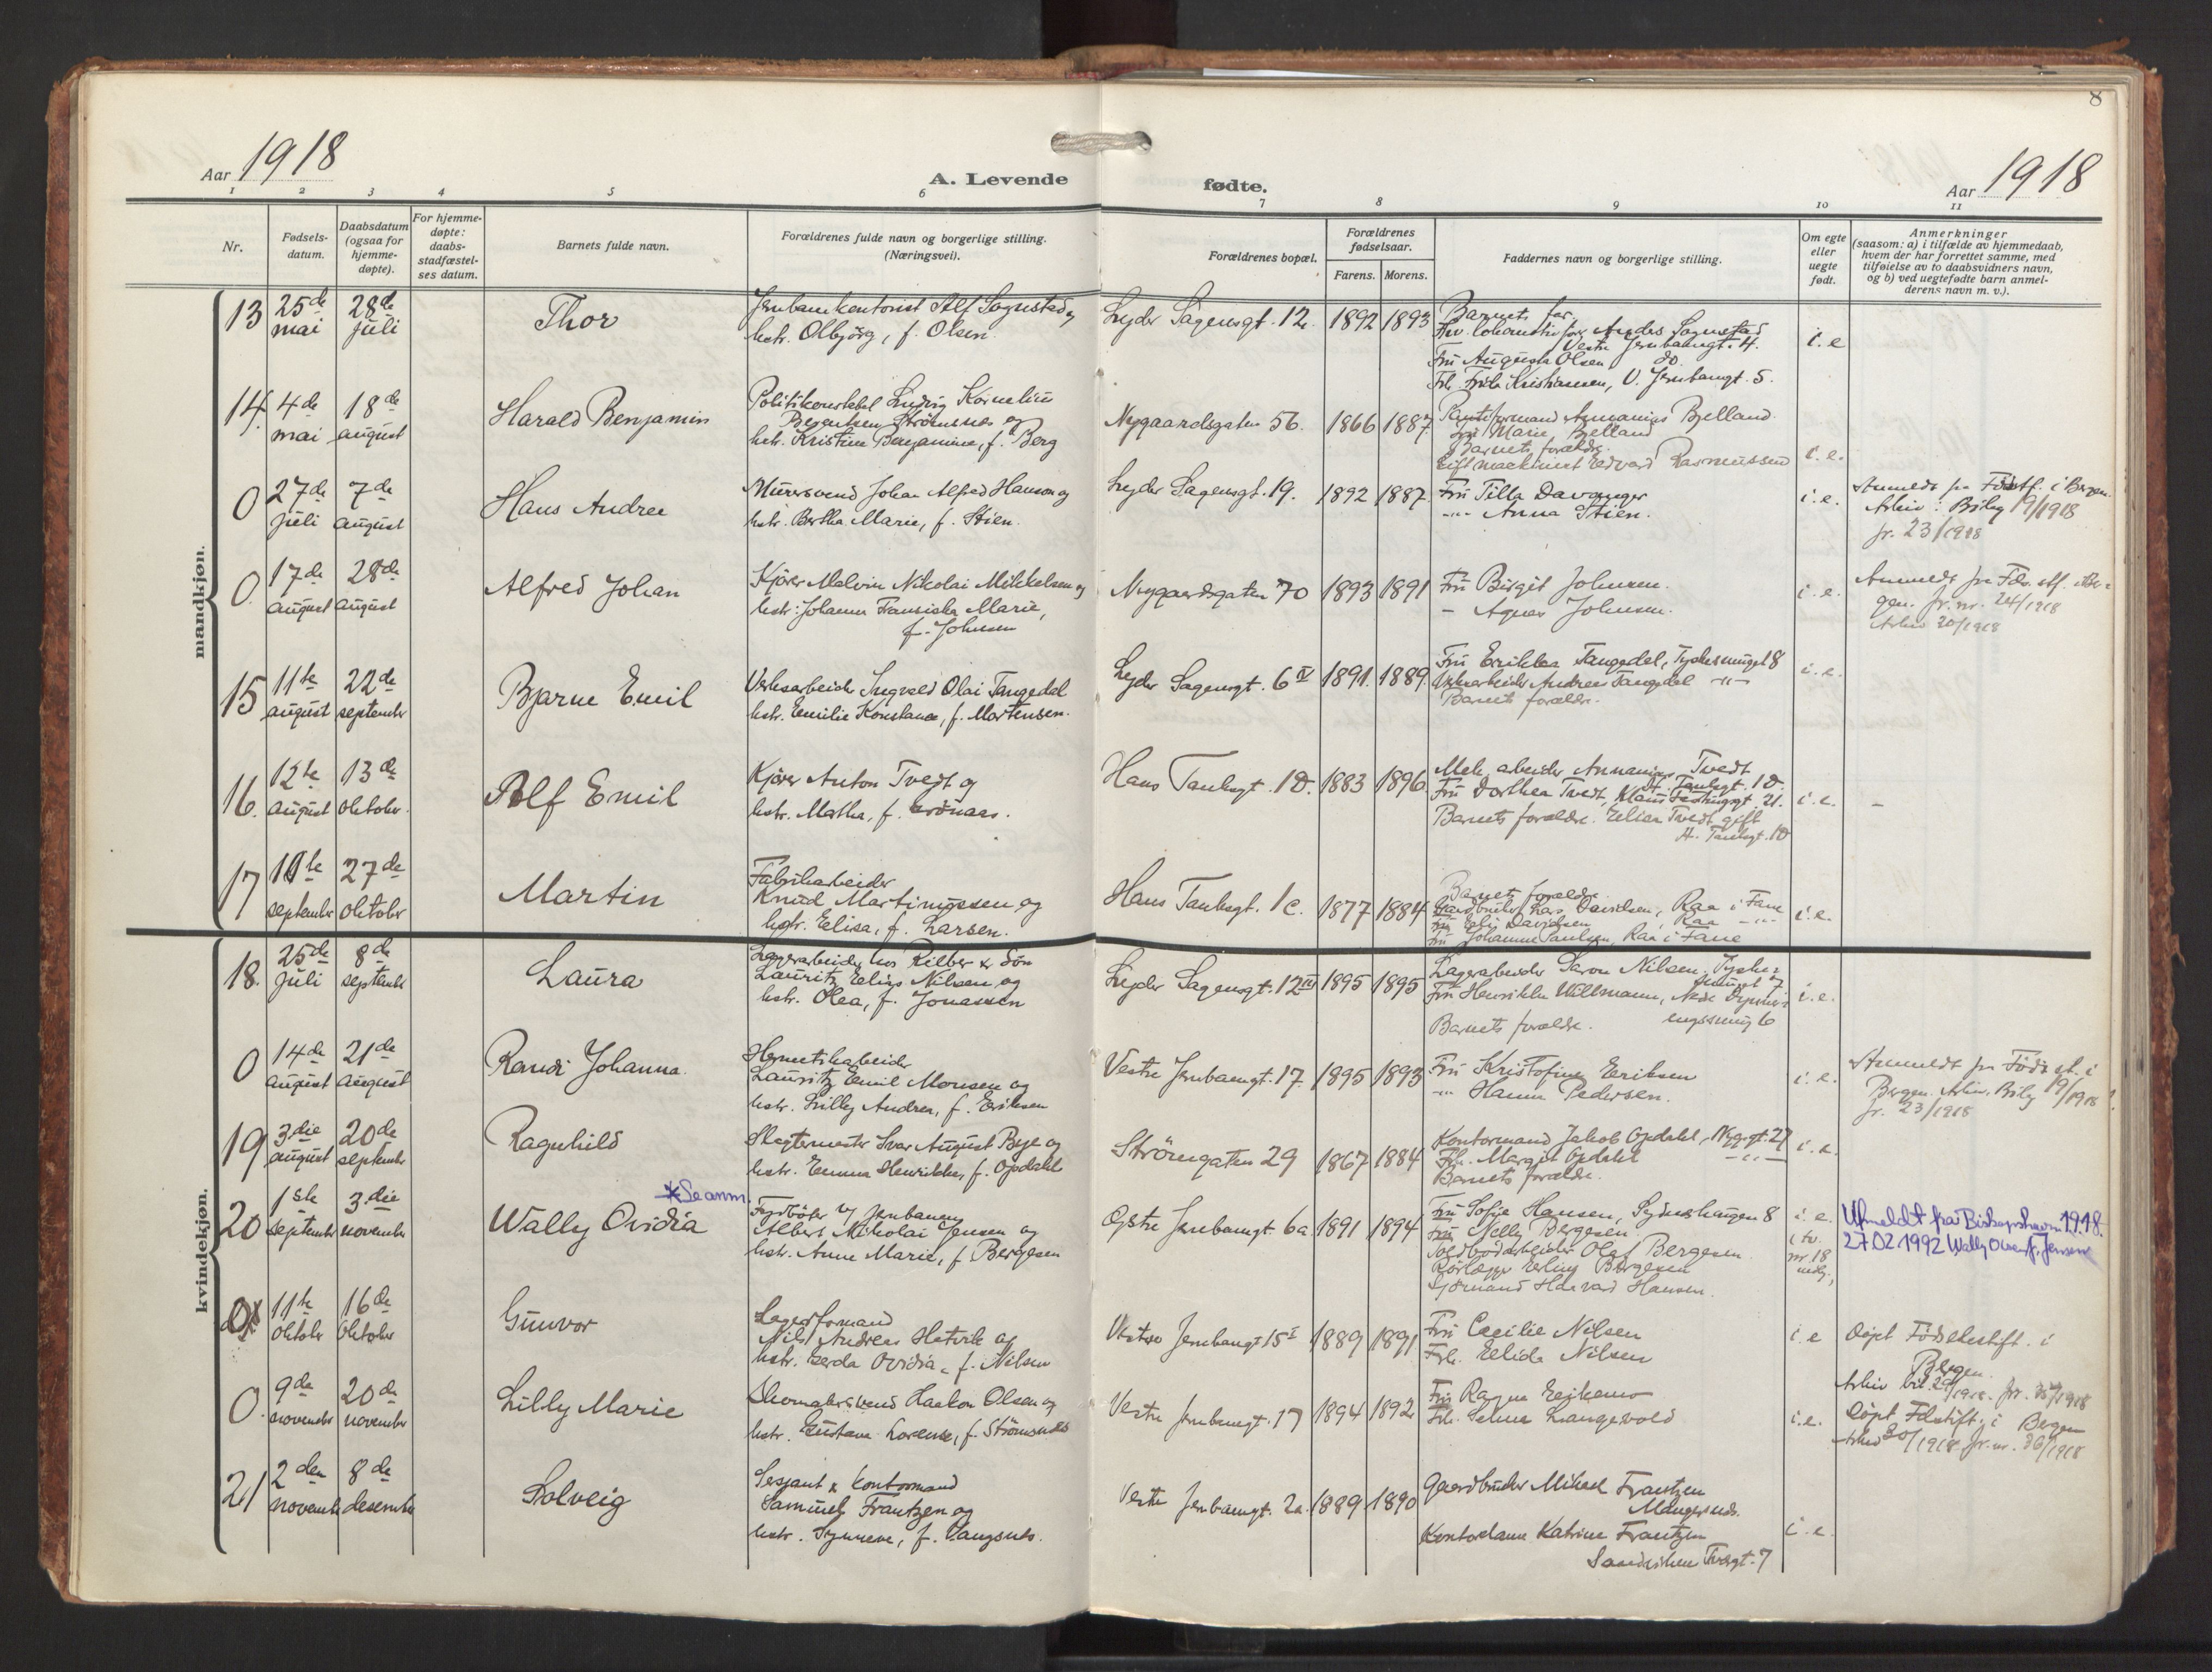 8
Aar 1918
A. Levende
fødte.
Aar 1918
1 2 3 4 5 6 7 8 9 10 11
Nr.
Fødselsdatum.
Daabsdatum (ogsaa for hjemmedøpte).
For hjemmedøpte: daabsstadfæstelses datum.
Barnets fulde navn.
Forældrenes fulde navn og borgerlige stilling. (Næringsvei).
Forældrenes bopæl.
Forældrenes fødselsaar.
Farens. Morens.
Faddernes navn og borgerlige stilling.
Om egte eller uegte født.
Anmerkninger
(saasom: a) i tilfælde av hjemmedaab,
hvem der har forrettet samme, med
tilføielse av to daabsvidners navn,
og b) ved uegtefødte barn anmelderens navn m. v.).
mandkjøn.
13 25de mai 28de juli Thor
hstr. Olbjörg, f. Olsen.
Lyder Sagensgt. 12. 1892 1893
Barnets far.
Vestre Jernbanegt. 4.
Fru Augusta Olsen do.
Kristiansen, V. Jernbanegt. 5.
i. e
14. 4de mai 18de august Harald Benjamin
Politikonstabel Ludvig Kornelius
Strömsnes og
hstr. Kristine Benjamine, f. Berg
Nygaardsgaten 56. 1866 1887
Bjelland.
Fru Marie Bjelland
Barnets forældre.
Edvard Rasmussen
i. e.
0 27de juli 7de august Hans Andree
Murersvend Johan Alfred Hanson og
hstr. Bertha Marie, f. Stien.
Lyder Sagensgt. 19. 1892 1887
Fru Tilla Davanger
-"- Anna Stien.
i. e.
Anmeldt fra Fødstf. i Bergen.
Arkiv: Bilag 19/1918
jr. 23/1918
0. 17de august 28de august Alfred Johan
Kjörer Melvin Nikolai Mikkelsen og
hstr. Johanna Fransiska Marie,
f. Johnsen
Nygaardsgaten 70 1893 1891
Fru Birgit Johnsen.
- Agnes Johnsen.
i. e.
Anmeldt fra Føds. stf. i Bergen. jr. nr. 24/1918
Arkiv 20/1918
15 11te august 22de september Bjarne Emil
Verksarbeider Ingvald Olai Tangedal
hstr. Emilie Konstance, f. Martensen.
Lyder Sagensgt. 6 IV 1891. 1889.
Fru Erikka Tangedal, Tyskesmuget 8
Verksarbeider Andreas Tangedal -"-
Barnets forældre.
i. e.
16. 12te august 13de oktober. Rolf Emil
Kjörer Anton Tvedt og
hstr. Martha, f. Grönaas.
Hans Tanksgt. 1D. 1883 1896
Mek. arbeider Annanias Tvedt
H. Tanksgt. 1D.
Fru Dorthea Tvedt,
Barnets forældre.
H. Tanksgt. 1D
i. e. -
17 10te september 27de oktober Martin
Fabrikarbeider
Knud Martinussen og
hstr. Elisa, f. Larsen.
Hans Tanksgt. 1c. 1877 1884
Barnets forældre.
Gaardbruker Lars Davidsen, Raa i Fane
Davidsen Raa -"-
Fru Johanne Paulsen, Raa i Fane
i. e.
kvindekjøn.
18. 25de juli 8de september Laura
Lagerarbeider hos Rieber & Sön
Lauritz Elias Nilsen og
hstr. Olea, f. Jonassen
Lyder Sagensgt. 12 III 1895 1895
Lagerarbeider Saron Nilsen, Tyskesmuget 7
Fru Henrikke Willmann, Nedre
Barnets forældre.
i. e.
0 14de august 21de august Randi Johanna.
Hermetikarbeider
Lauritz Emil Monsen og
hstr. Lilly Andrea, f. Eriksen
Vestre Jernbanegt. 17. 1895 1893
Fru Kristofine Eriksen
-"- Hanna Pedersen.
i. e.
Anmeldt fra Föds. st. i
Bergen. Arkiv. Bilag 19/1918
jr. 23/1918
19 3die august 20de september Ragnhild
Slagtermester Ivar August Bye og
hstr. Emma Henrikke, f. Opdahl
Strömgaten 29 1867 1884
Kontormand Jakob Opdahl, Nyg.gt. 27
Frk. Margit Opdahl -"-
Barnets forældre.
i. e.
*Se anm.
20 1ste september 3die november Wally Ovidia
Fyrböter v/ Jernbanen
Albert Nikolai Jensen og
hstr. Anne Marie, f. Bergesen
Østre Jernbanegt 6a 1891 1894
Fru Sofie Hansen, Sydneshaugen 8
Fru Nelly Bergesen,
Olaf Bergesen.
Rörlægger Erling Bergesen
Sjömand Hansen.
i. e.
Utmeldt fra Biskopshavn 1918.
27.02 1992 Wally f. Jensen
0 11te oktober 16de oktober Gunvor
Lagerformand
Nils Andreas Hatvik og
hstr. Gerda Ovidia, f. Nilsen
Vestre Jernbanegt 15 I 1889 1891
Fru Cecilie Nilsen
Frk. Elida Nilsen
i. e
Döpt Födselsstift. i
Bergen.
0. 9de november 20de november Lilly Marie
Skomakersvend Haakon Olsen og
hstr. Gustava Lorense, f. Strömsnes
Vestre Jernbanegt. 17 1894 1892
Fru Ragna
Frk. Selma Langevold
i. e.
Döpt Fdstift. i Bergen
Arkiv 30/1918 jr. nr. 36/1918
21 2den november 8de desember Solveig
Sersjant & kontormand
Samuel Frantzen og
hstr. Synneve, f. Vangsnes.
Vestre Jernbanegt. 2a. 1889 1890
Gaardbruker Mikael Frantzen
Mangersnes.
Kontordame Katrine Frantzen
Sandviken Tvergt. 7
i. e.